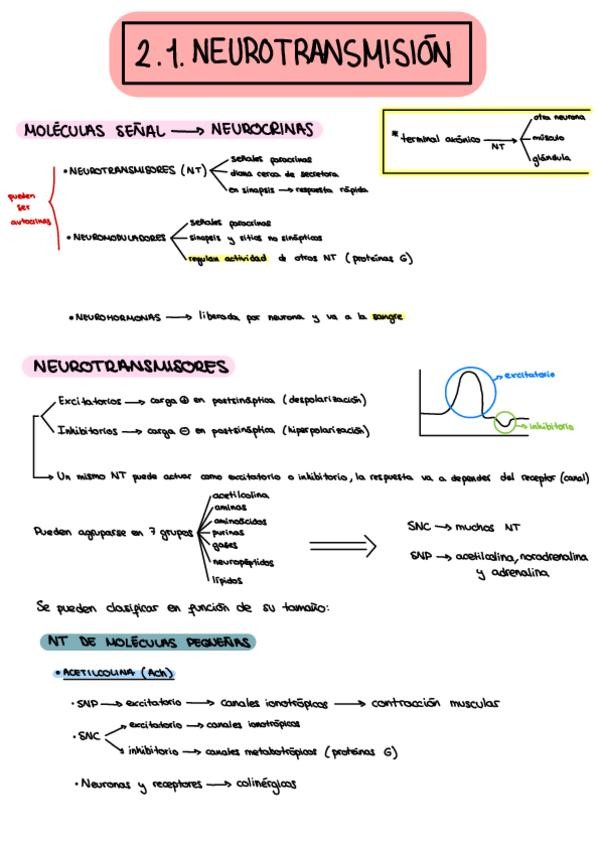 2.1. NEUROTRANSMISIÓN
MOLÉCULAS SEÑAL → NEUROCRINAS
* terminal axónico → NT
otra neurona
músculo
glándula
pueden ser autocrinas
• NEUROTRANSMISORES (NT)
señales paracrinas
diana cerca de secretora
en sinapsis → respuesta rápida
• NEUROMODULADORES
señales paracrinas
sinapsis y sitios no sinápticos
regulan actividad de otros NT (proteínas G)
• NEUROHORMONAS → liberada por neurona y va a la sangre
NEUROTRANSMISORES
Excitatorios → carga ⊕ en postsináptica (despolarización)
Inhibitorios → carga ⊖ en postsináptica (hiperpolarización)
excitatorio
inhibitorio
Un mismo NT puede actuar como excitatorio o inhibitorio, la respuesta va a depender del receptor (canal)
Pueden agruparse en 7 grupos
acetilcolina
aminas
aminoácidos
purinas
gases
neuropéptidos
lípidos
SNC → muchos NT
SNP → acetilcolina, noradrenalina
y adrenalina
Se pueden clasificar en función de su tamaño:
NT DE MOLÉCULAS PEQUEÑAS
• ACETILCOLINA (Ach)
· SNP → excitatorio → canales ionotrópicos → contracción muscular
· SNC
excitatorio → canales ionotrópicos
inhibitorio → canales metabotrópicos (proteínas G)
· Neuronas y receptores → colinérgicos